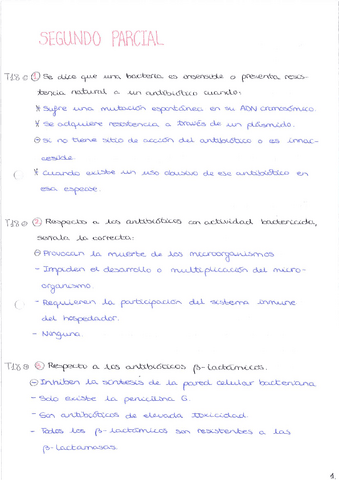 SEGUNDO PARCIAL
T18 ① Se dice que una bacteria es insensible o presenta resis-
tencia natural a un antibiótico cuando:
Sufre una mutación espontánea en su ADN cromosómico.
Se adquiere resistencia a través de un plásmido.
Si no tiene sitio de acción del antibiótico o es inac-
cesible.
Cuando existe un uso abusivo de ese antibiótico en
esa especie.
T18 ② Respecto a los antibióticos con actividad bactericida,
señala la correcta:
Provocan la muerte de los microorganismos
- Impiden el desarrollo o multiplicación del micro-
organismo.
- Requieren la participación del sistema inmune
del hospedador.
- Ninguna.
T18 ③ Respecto a los antibióticos β-lactámicos.
Inhiben la síntesis de la pared celular bacteriana
- Solo existe la penicilina G.
- Son antibióticos de elevada toxicidad.
- Todos los β-lactámicos son resistentes a las
β-lactamasas.
1.